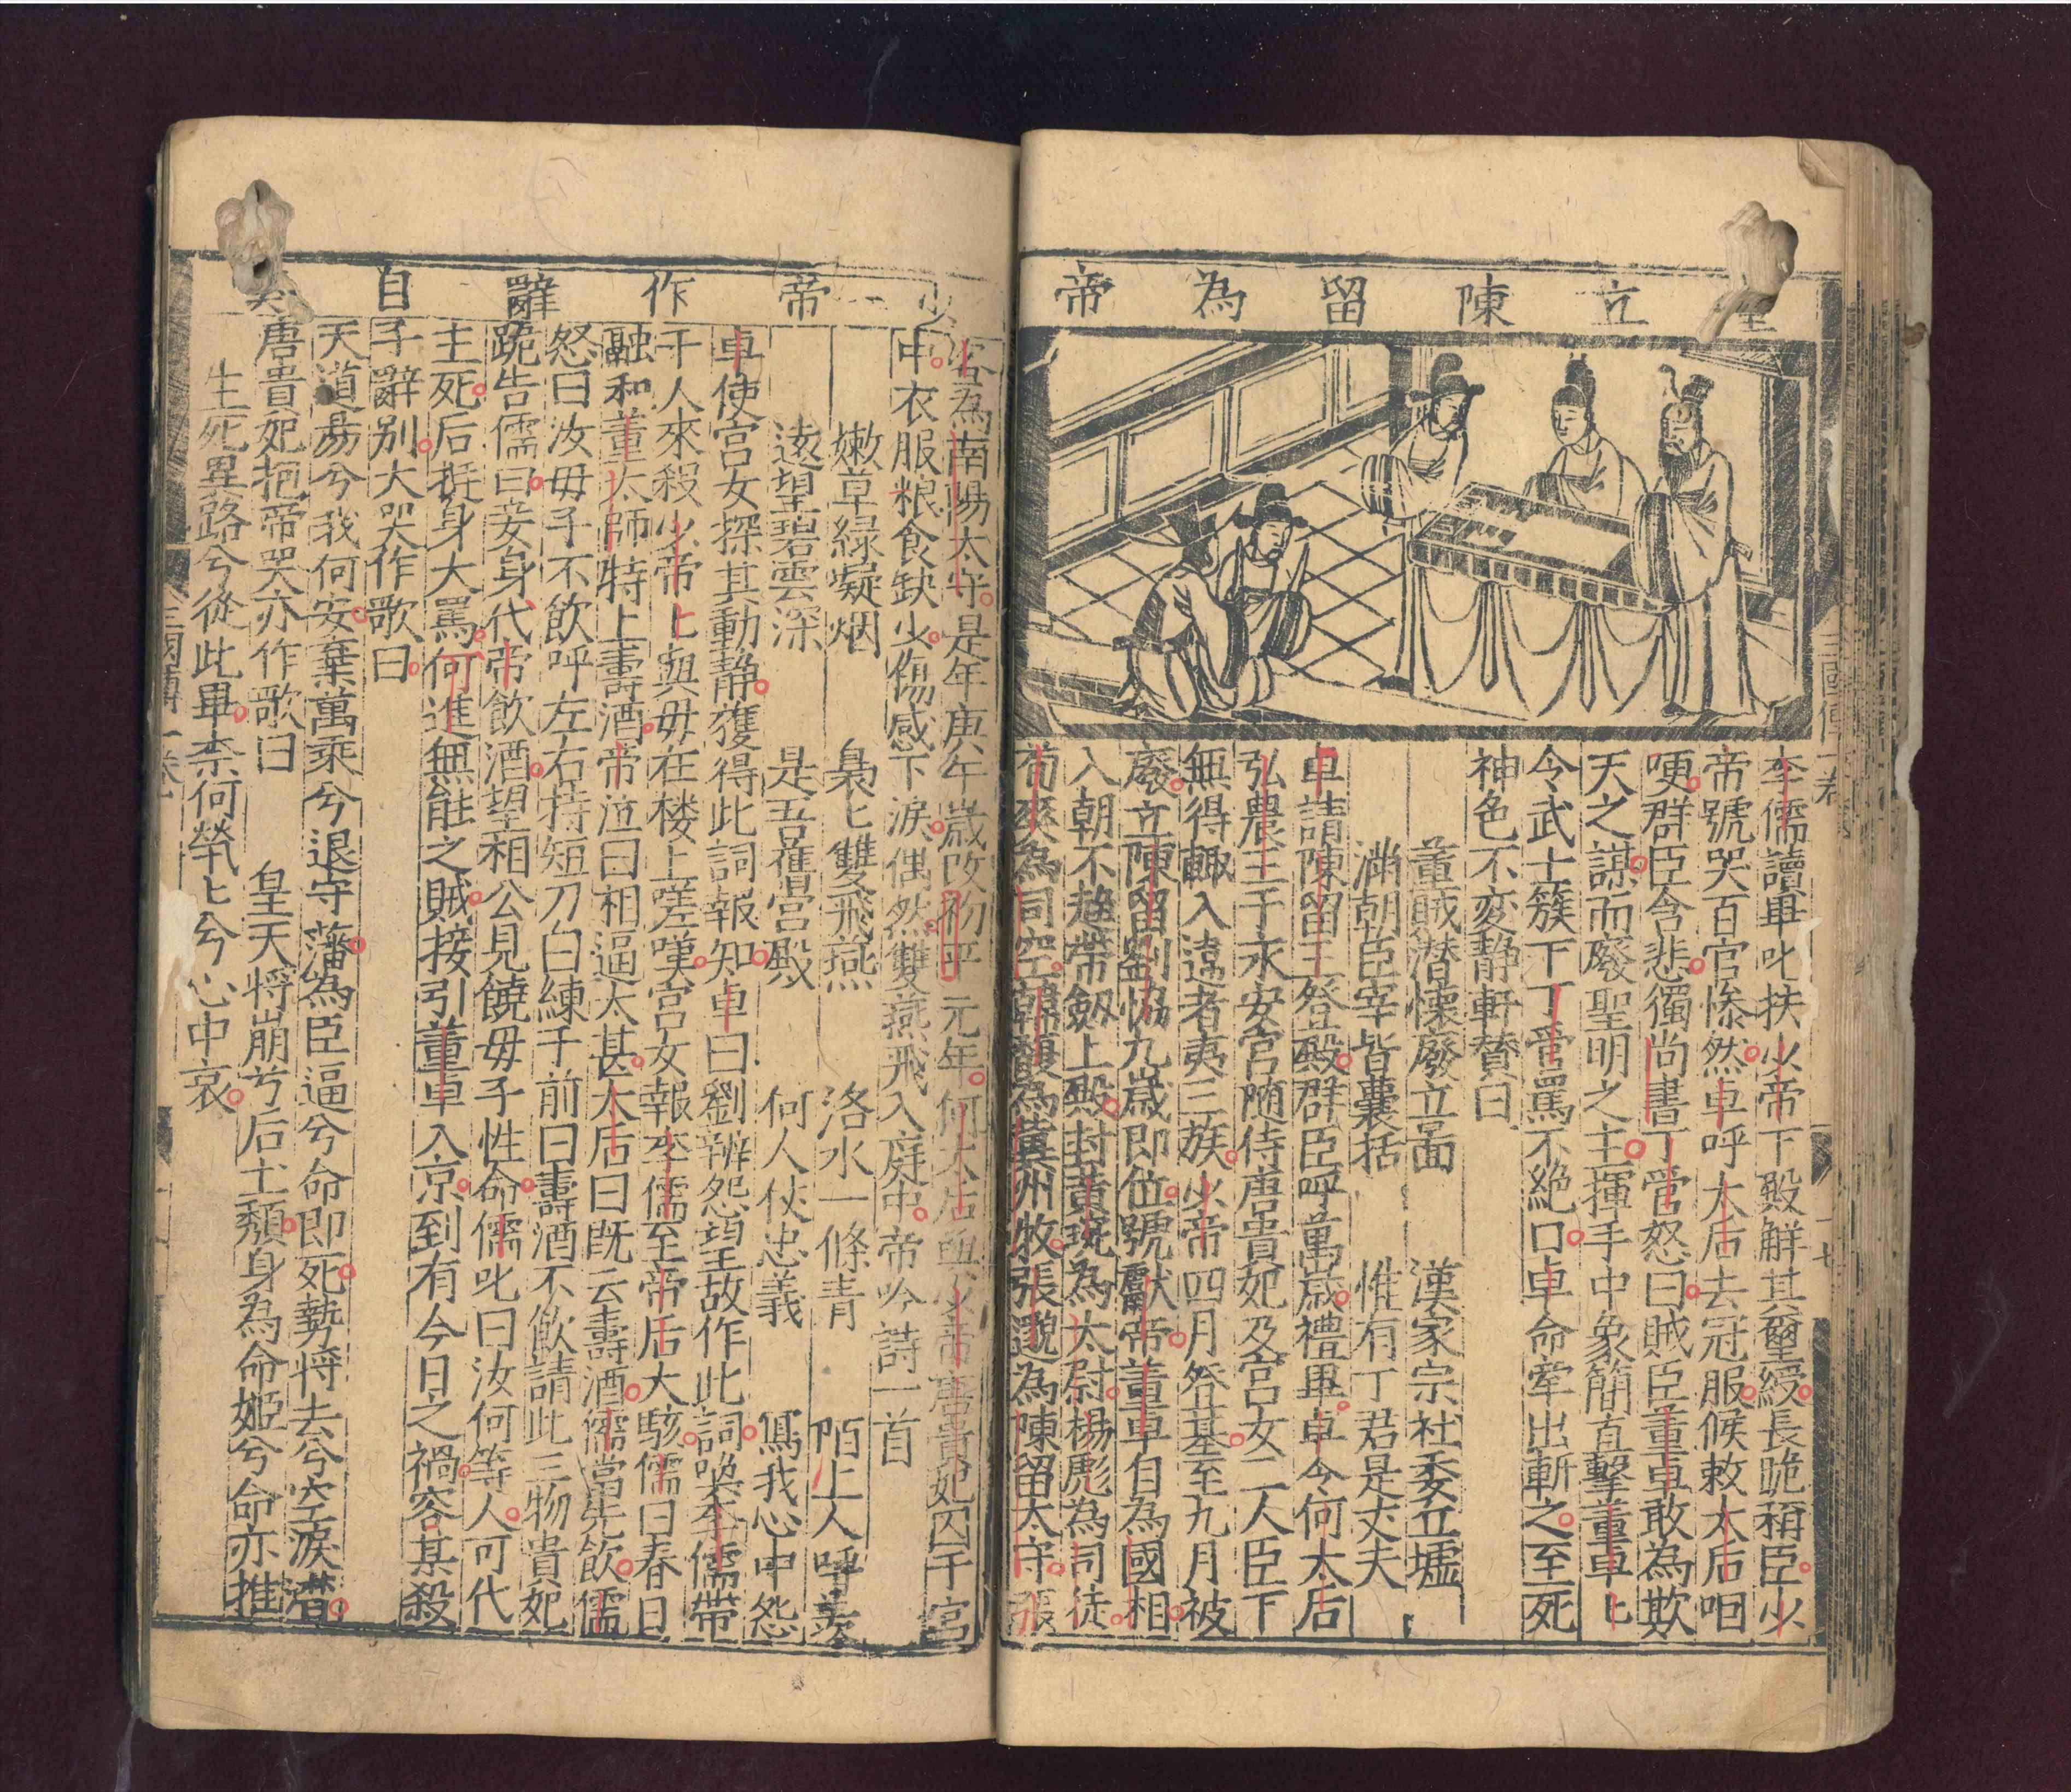 立陳留為帝
李儒讀畢叱扶少帝下殿解其璽綬長跪稱臣少
帝號哭百官慘然卓呼太后去冠服候敕太后咽
哽群臣含悲獨尚書丁管怒曰賊臣董卓敢為欺
天之謀而廢聖明之主揮手中象簡直擊董卓匕
令武士簇下丁管罵不絕口卓命牽出斬之至死
神色不变静軒賛曰
董賊潜懐廢立啚 漢家宗社委丘墟
滿朝臣宰皆囊括 惟有丁君是丈夫
卓請陳留王登殿群臣呼萬歲禮畢卓令何太后
弘農王于永安宮随侍唐貴妃及宮女二人臣下
無得輙入違者夷三族少帝四月登基至九月被
廢立陳留劉協九歲即位號獻帝董卓自為國相
入朝不趍帶劔上殿封黄琬為太尉楊彪為司徒
荀爽為司空韓馥為冀州牧張邈為陳留太守張
三國傳一卷
少帝作辭自
咨為南陽太守是年庚午歲改初平元年何太后與少帝唐貴妃囚于宮
中衣服粮食缺少傷感下淚偶然雙燕飛入庭中帝吟詩一首
嫩草緑凝烟 裊匕雙飛燕 洛水一條青 陌上人呼羨
遠望碧雲深 是吾舊宮殿 何人仗忠義 寫我心中怨
卓使宮女探其動静獲得此詞報知卓曰劉辨怨望故作此詞喚李儒帶
千人來殺少帝匕與母在楼上嗟嘆宮女報李儒至帝后大駭儒曰春日
融和董太師特上壽酒帝泣曰相逼太甚太后曰既云壽酒儒當先飲儒
怒曰汝母子不飲呼左右持短刀白練于前曰壽酒不飲請此三物貴妃
跪告儒曰妾身代帝飲酒望相公見饒母子性命儒叱曰汝何等人可代
主死后挺身大罵何進無能之賊接引董卓入京到有今日之禍容某殺
子辭别大哭作歌曰
天道昜兮我何安棄萬乘兮退守藩為臣逼兮命即死勢将去兮空淚潸
唐貴妃抱帝哭亦作歌曰 皇天将崩兮后土頹身為命姬兮命亦摧
生死異路兮從此畢柰何煢匕兮心中哀
三國傳一卷